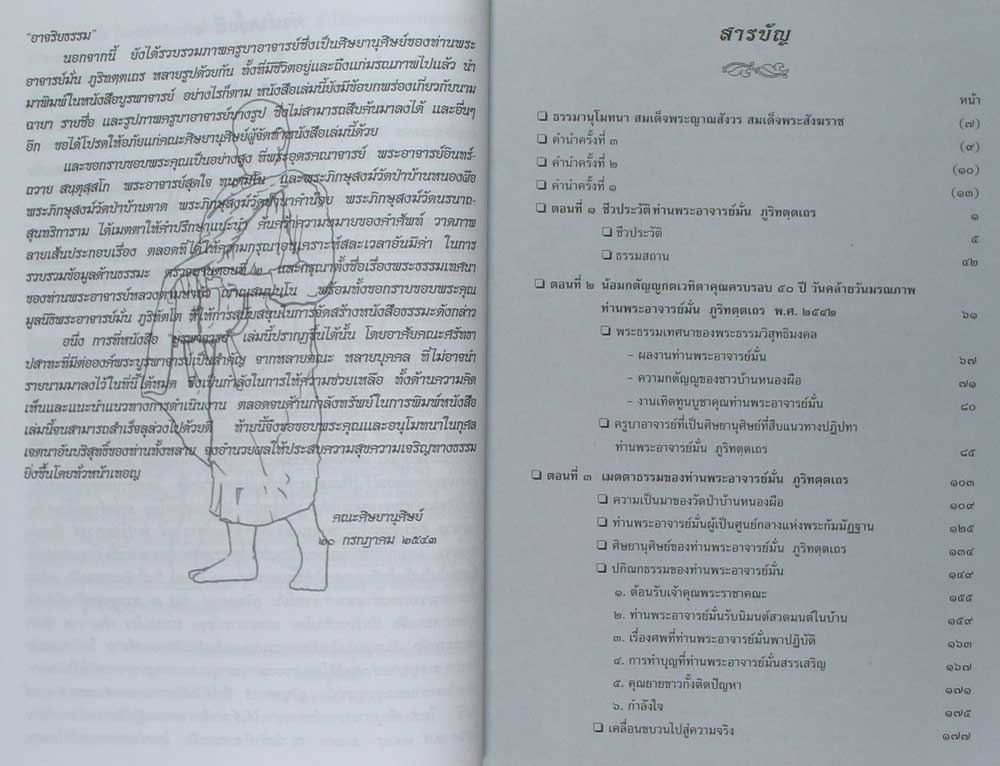 "อาจริยธรรม"
นอกจากนี้ ยังได้รวบรวมภาพครูบาอาจารย์ซึ่งเป็นศิษยานุศิษย์ของท่านพระ
อาจารย์มั่น ภูริทตฺตเถร หลายรูปด้วยกัน ทั้งที่มีชีวิตอยู่และถึงแก่มรณภาพไปแล้ว นำ
มาพิมพ์ในหนังสือบูรพาจารย์ อย่างไรก็ตาม หนังสือเล่มนี้ยังมีข้อบกพร่องเกี่ยวกับนาม
ฉายา รายชื่อ และรูปภาพครูบาอาจารย์บางรูป ซึ่งไม่สามารถสืบค้นมาลงได้ และอื่นๆ
อีก ขอได้โปรดให้อภัยแก่คณะศิษยานุศิษย์ผู้จัดทำหนังสือเล่มนี้ด้วย
และขอกราบขอบพระคุณเป็นอย่างสูง ที่พระอุดรคณาจารย์ พระอาจารย์อินทร์-
ถวาย สนฺตุสฺสโก พระอาจารย์สุดใจ ทนฺตมโน และพระภิกษุสงฆ์วัดป่าบ้านหนองผือ
พระภิกษุสงฆ์วัดป่าบ้านตาด พระภิกษุสงฆ์วัดป่านาคำน้อย พระภิกษุสงฆ์วัดนรนาถ-
สุนทริการาม ได้เมตตาให้คำปรึกษาแนะนำ ค้นคว้าความหมายของคำศัพท์ วาดภาพ
ลายเส้นประกอบเรื่อง ตลอดที่ได้ให้ความกรุณาอนุเคราะห์สละเวลาอันมีค่า ในการ
รวบรวมข้อมูลด้านธรรมะ ตรวจทานตอนที่ ๒ และกรุณาตั้งชื่อเรื่องพระธรรมเทศนา
ของท่านพระอาจารย์หลวงตามหาบัว ญาณสมฺปนฺโน พร้อมทั้งขอกราบขอบพระคุณ
มูลนิธิพระอาจารย์มั่น ภูริทัตโต ที่ให้การสนับสนุนในการจัดสร้างหนังสือธรรมะดังกล่าว
อนึ่ง การที่หนังสือ "บูรพาจารย์" เล่มนี้ปรากฏขึ้นได้นั้น โดยอาศัยคณะศรัทธา
ปสาทะที่มีต่อองค์พระบูรพาจารย์เป็นสำคัญ จากหลายคณะ หลายบุคคล ที่ไม่อาจนำ
รายนามมาลงไว้ในที่นี้ได้หมด ซึ่งเป็นกำลังในการให้ความช่วยเหลือ ทั้งด้านความคิด
เห็นและแนะนำแนวทางการดำเนินงาน ตลอดจนด้านกำลังทรัพย์ในการพิมพ์หนังสือ
เล่มนี้จนสามารถสำเร็จลุล่วงไปด้วยดี ท้ายนี้จึงขอขอบพระคุณและอนุโมทนาในกุศล
เจตนาอันบริสุทธิ์ของท่านทั้งหลาย จงอำนวยผลให้ประสบความสุขความเจริญทางธรรม
ยิ่งขึ้นโดยทั่วหน้าเทอญ
คณะศิษยานุศิษย์
๒๐ กรกฎาคม ๒๕๔๓
สารบัญ
หน้า
❏ ธรรมานุโมทนา สมเด็จพระญาณสังวร สมเด็จพระสังฆราช (๗)
❏ คำนำครั้งที่ ๓ (๙)
❏ คำนำครั้งที่ ๒ (๑๐)
❏ คำนำครั้งที่ ๑ (๑๓)
❏ ตอนที่ ๑ ชีวประวัติท่านพระอาจารย์มั่น ภูริทตฺตเถร ๑
❏ ชีวประวัติ ๕
❏ ธรรมสถาน ๔๒
❏ ตอนที่ ๒ น้อมกตัญญูกตเวทิตาคุณครบรอบ ๕๐ ปี วันคล้ายวันมรณภาพ
ท่านพระอาจารย์มั่น ภูริทตฺตเถร พ.ศ. ๒๕๔๒ ๖๑
❏ พระธรรมเทศนาของพระธรรมวิสุทธิมงคล
– ผลงานท่านพระอาจารย์มั่น ๖๗
– ความกตัญญูของชาวบ้านหนองผือ ๗๑
– งานเทิดทูนบูชาคุณท่านพระอาจารย์มั่น ๘๐
❏ ครูบาอาจารย์ที่เป็นศิษยานุศิษย์ที่สืบแนวทางปฏิปทา
ท่านพระอาจารย์มั่น ภูริทตฺตเถร ๘๕
❏ ตอนที่ ๓ เมตตาธรรมของท่านพระอาจารย์มั่น ภูริทตฺตเถร ๑๐๓
❏ ความเป็นมาของวัดป่าบ้านหนองผือ ๑๐๙
❏ ท่านพระอาจารย์มั่นผู้เป็นศูนย์กลางแห่งพระกัมมัฏฐาน ๑๒๕
❏ ศิษยานุศิษย์ของท่านพระอาจารย์มั่น ภูริทตฺตเถร ๑๓๔
❏ ปกิณกธรรมของท่านพระอาจารย์มั่น ๑๔๙
๑. ต้อนรับเจ้าคุณพระราชาคณะ ๑๕๕
๒. ท่านพระอาจารย์มั่นรับนิมนต์สวดมนต์ในบ้าน ๑๕๙
๓. เรื่องศพที่ท่านพระอาจารย์มั่นพาปฏิบัติ ๑๖๓
๔. การทำบุญที่ท่านพระอาจารย์มั่นสรรเสริญ ๑๖๗
๕. คุณยายขาวกั้งติดปัญหา ๑๗๑
๖. กำลังใจ ๑๗๕
❏ เคลื่อนขบวนไปสู่ความจริง ๑๗๗